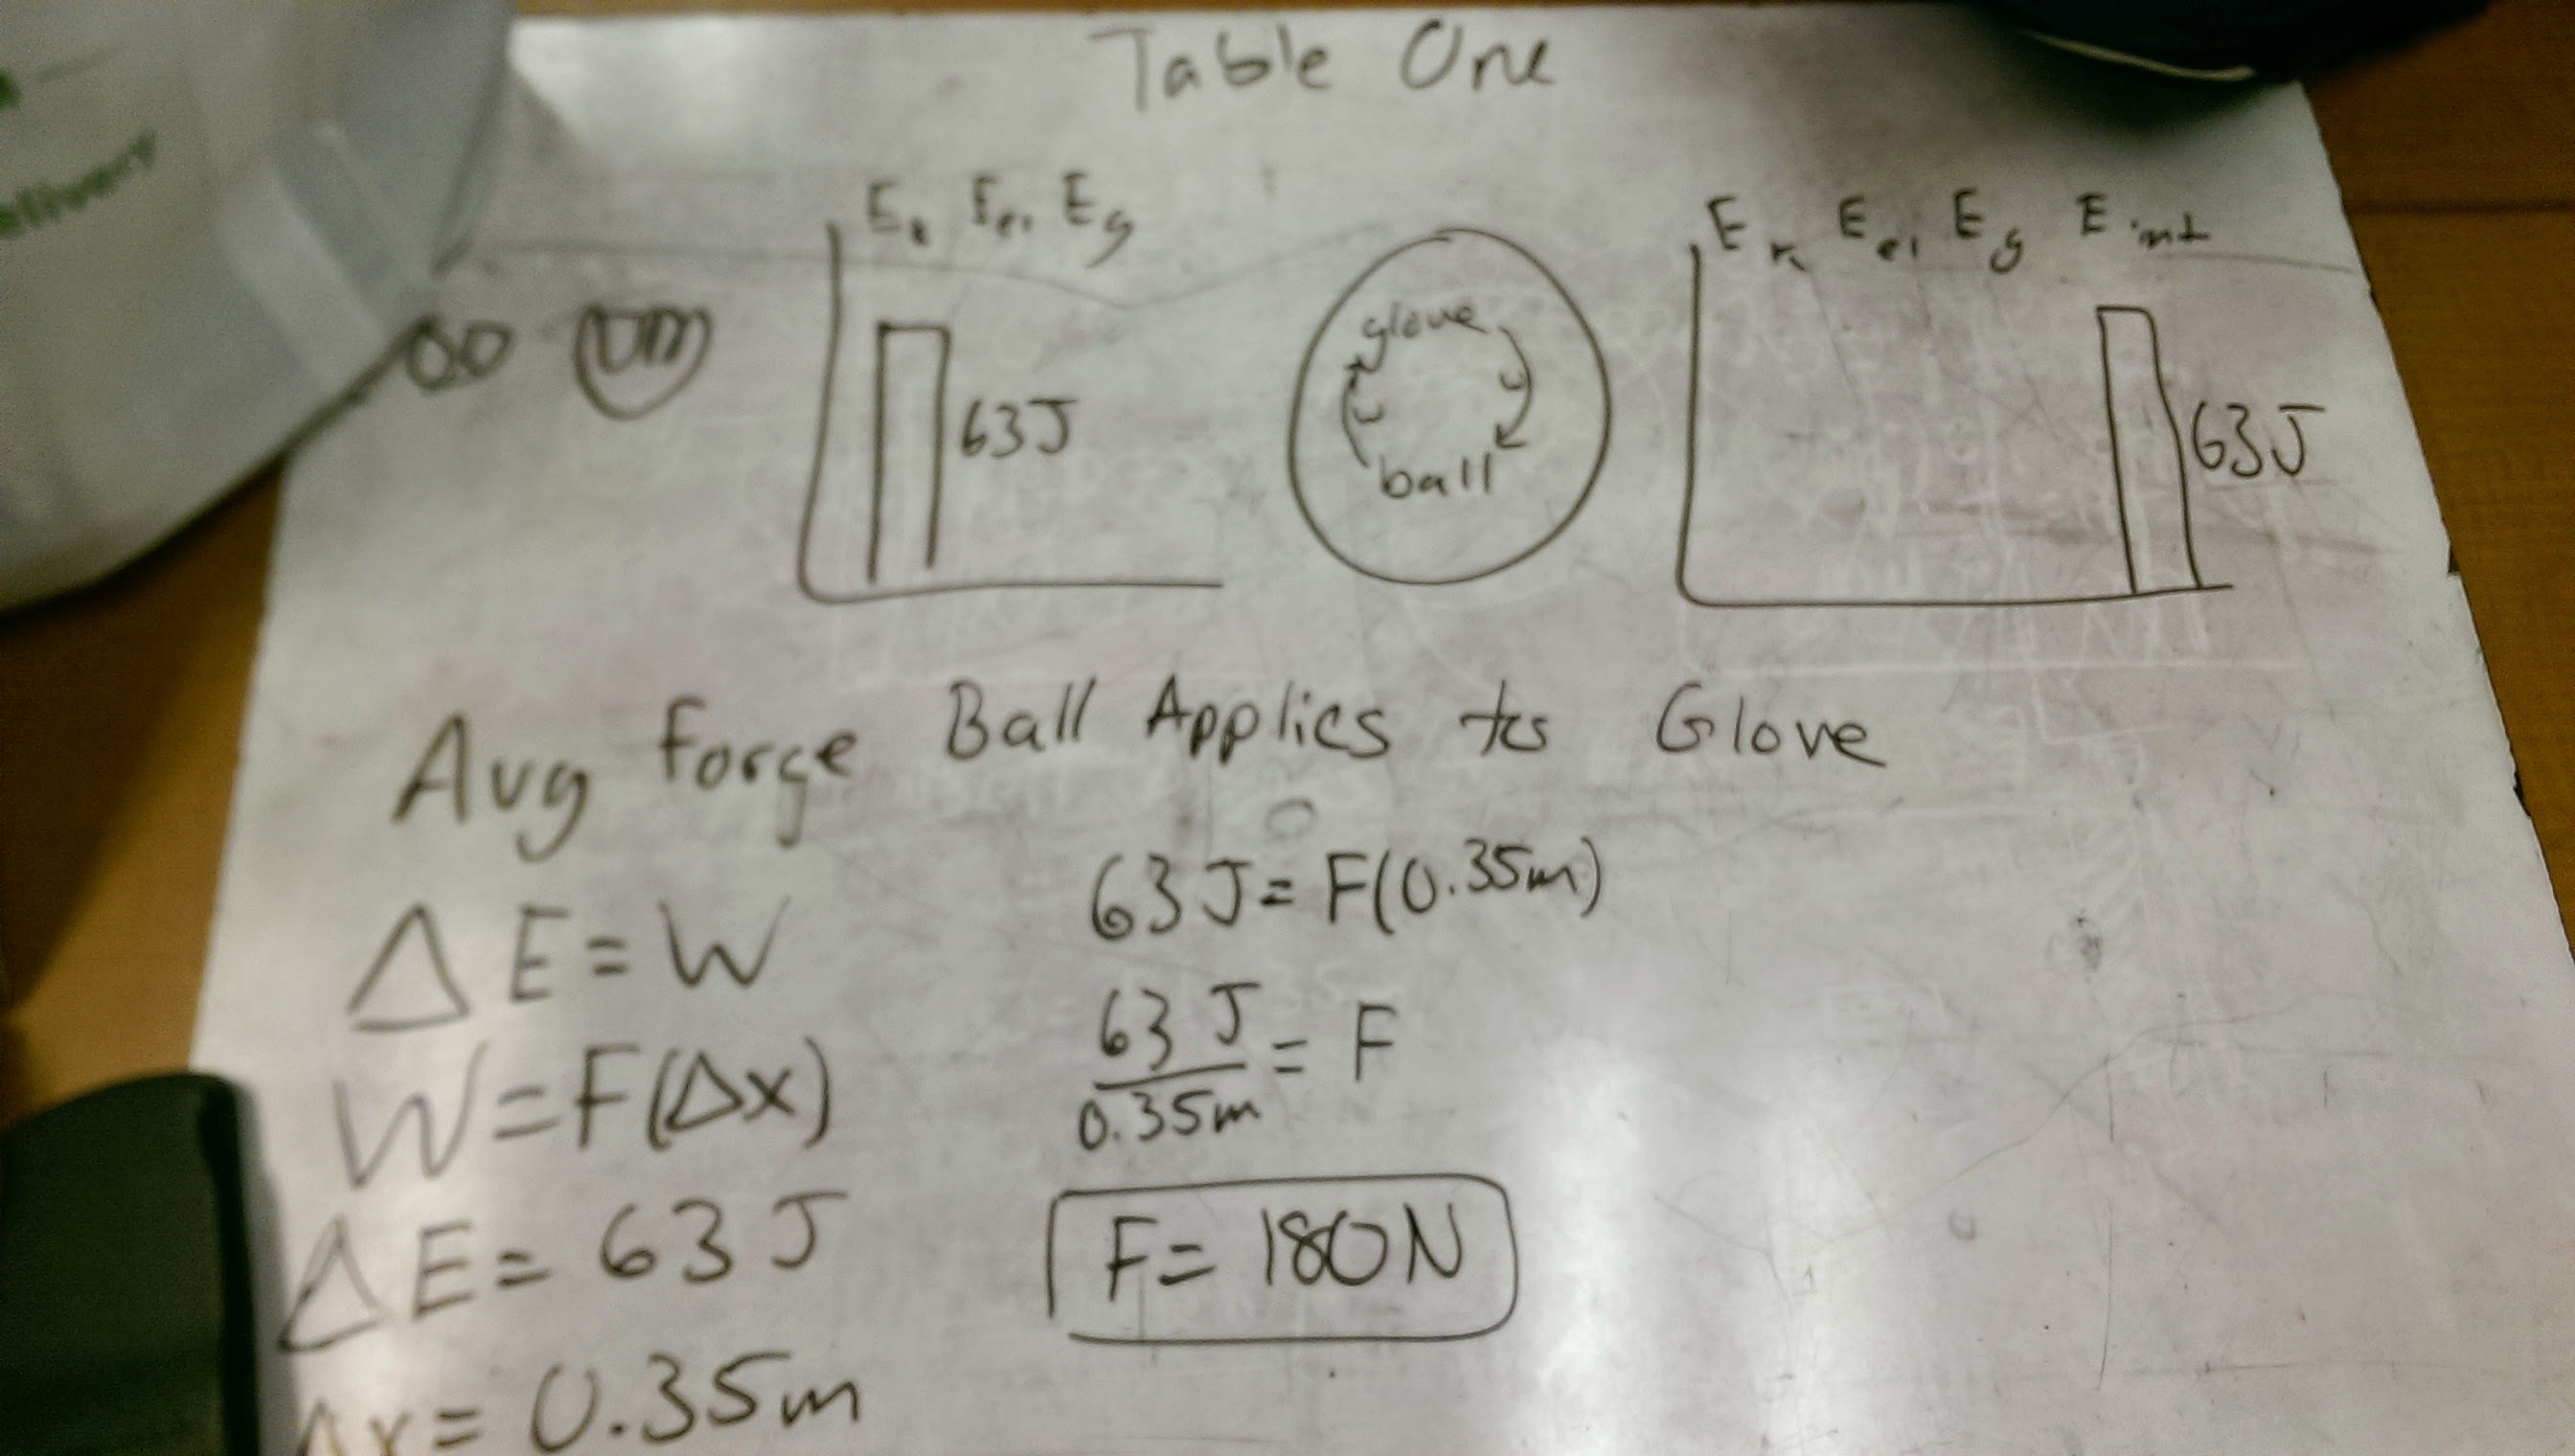 Table One
elivery
Ek Eel Eg
63J
glove
ball
Ek Eel Eg Eint
63J
Avg Force Ball Applies to Glove
ΔE=W
W=F(Δx)
ΔE= 63J
Δx= 0.35m
63J=F(0.35m)
63J
0.35m
= F
F= 180N